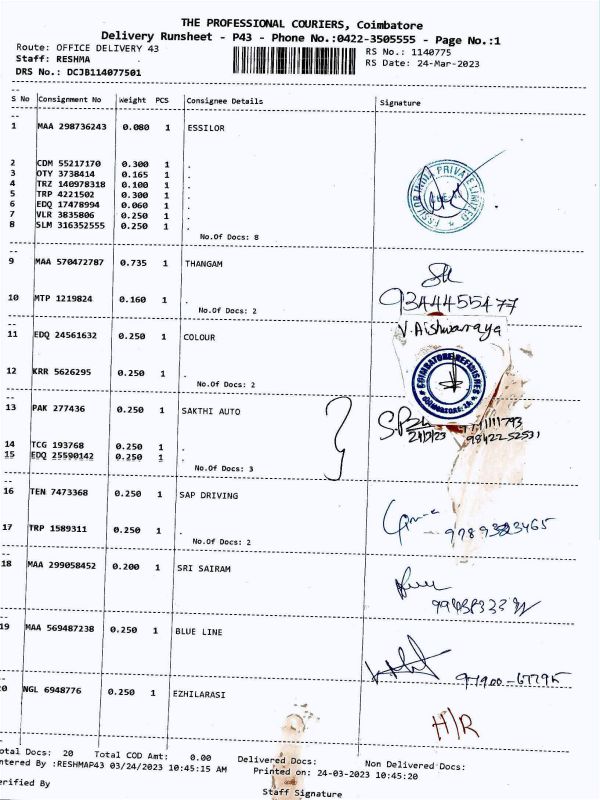 THE PROFESSIONAL COURIERS, Coimbatore
Delivery Runsheet - P43 - Phone No.:0422-3505555 - Page No.:1
Route: OFFICE DELIVERY 43 RS No.: 1140775
Staff: RESHMA RS Date: 24-Mar-2023
DRS No.: DCJB114077501
S No Consignment No Weight PCS Consignee Details Signature
1 MAA 298736243 0.080 1 ESSILOR
2 CDM 55217170 0.300 1 .
3 OTY 3738414 0.165 1 .
4 TRZ 140978318 0.100 1 .
5 TRP 4221502 0.300 1 .
6 EDQ 17478994 0.060 1 .
7 VLR 3835806 0.250 1 .
8 SLM 316352555 0.250 1 .
No.Of Docs: 8
ESSILOR INDIA PRIVATE LIMITED
9 MAA 570472787 0.735 1 THANGAM
10 MTP 1219824 0.160 1 .
No.Of Docs: 2
9344455477
V. Aishwaraya
11 EDQ 24561632 0.250 1 COLOUR
12 KRR 5626295 0.250 1 .
No.Of Docs: 2
13 PAK 277436 0.250 1 SAKTHI AUTO
14 TCG 193768 0.250 1 .
15 EDQ 25590142 0.250 1 .
No.Of Docs: 3
16 TEN 7473368 0.250 1 SAP DRIVING
17 TRP 1589311 0.250 1 .
No.Of Docs: 2
18 MAA 299058452 0.200 1 SRI SAIRAM
19 MAA 569487238 0.250 1 BLUE LINE
97900-67795
20 NGL 6948776 0.250 1 EZHILARASI
H/R
otal Docs: 20 Total COD Amt: 0.00 Delivered Docs: Non Delivered Docs:
ntered By :RESHMAP43 03/24/2023 10:45:15 AM Printed on: 24-03-2023 10:45:20
erified By Staff Signature